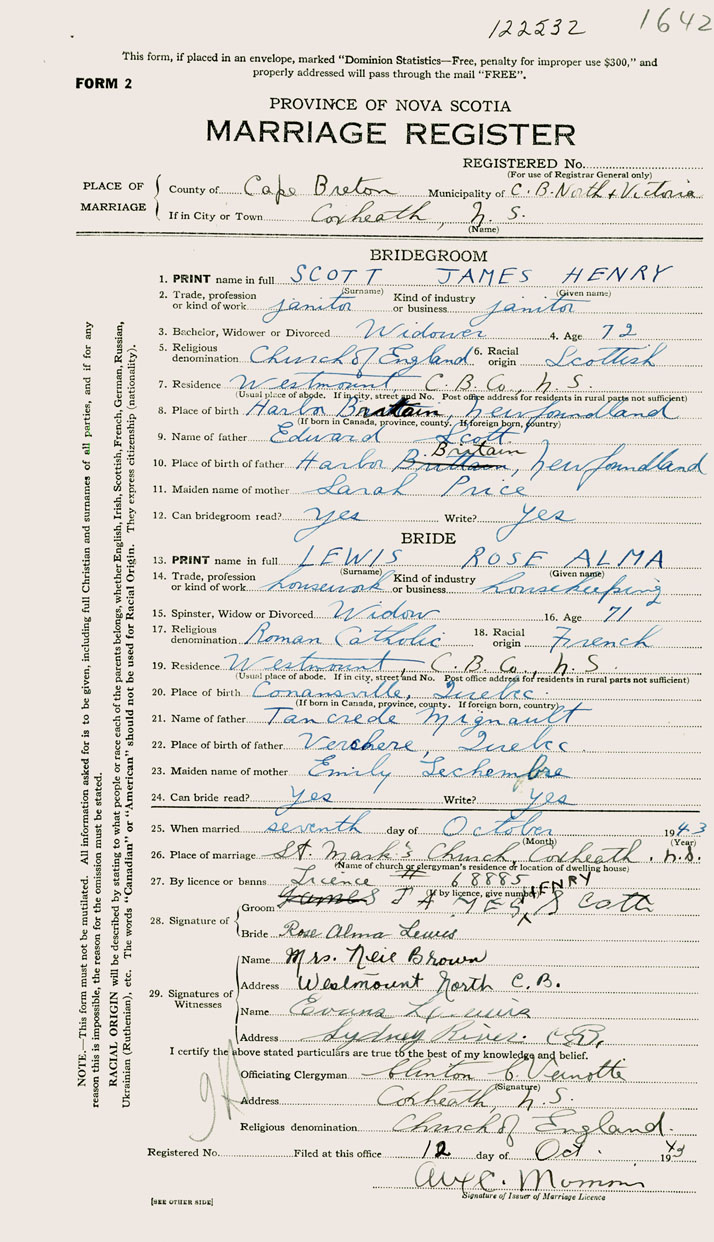 122532 1642
This form, if placed in an envelope, marked “Dominion Statistics—Free, penalty for improper use $300,” and
properly addressed will pass through the mail “FREE”.
FORM 2
PROVINCE OF NOVA SCOTIA
MARRIAGE REGISTER
REGISTERED No.
(For use of Registrar General only)
PLACE OF MARRIAGE
County of Cape Breton Municipality of C. B. North & Victoria
If in City or Town Coxheath, N. S.
(Name)
BRIDEGROOM
1. PRINT name in full SCOTT JAMES HENRY
(Surname) (Given name)
2. Trade, profession or kind of work janitor Kind of industry or business janitor
3. Bachelor, Widower or Divorced Widower 4. Age 72
5. Religious denomination Church of England 6. Racial origin Scottish
7. Residence Westmount, C. B. Co., N. S.
(Usual place of abode. If in city, street and No. Post office address for residents in rural parts not sufficient)
8. Place of birth Harbor Britain, Newfoundland
(If born in Canada, province, county. If foreign born, country)
9. Name of father Edward Scott
10. Place of birth of father Harbor Britain, Newfoundland
11. Maiden name of mother Sarah Price
12. Can bridegroom read? yes Write? yes
BRIDE
13. PRINT name in full LEWIS ROSE ALMA
(Surname) (Given name)
14. Trade, profession or kind of work housework Kind of industry or business housekeeping
15. Spinster, Widow or Divorced Widow 16. Age 71
17. Religious denomination Roman Catholic 18. Racial origin French
19. Residence Westmount, C. B. Co., N. S.
(Usual place of abode. If in city, street and No. Post office address for residents in rural parts not sufficient)
20. Place of birth Conansville, Quebec
(If born in Canada, province, county. If foreign born, country)
21. Name of father Tancrede Mignault
22. Place of birth of father Verchere, Quebec
23. Maiden name of mother Emily
24. Can bride read? yes Write? yes
25. When married seventh day of October 1943
(Month) (Year)
26. Place of marriage St. Mark's Church, Coxheath, N.S.
(Name of church or clergyman's residence or location of dwelling house)
27. By licence or banns Licence # 68885
(If by licence, give number)
28. Signature of
Groom James JAMES HENRY Scott
Bride Rose Alma Lewis
29. Signatures of Witnesses
Name Mrs. Neil Brown
Address Westmount North C.B.
Name Evans Lewis
Address Sydney River. C.B.
I certify the above stated particulars are true to the best of my knowledge and belief.
Officiating Clergyman Clinton C. Vernotte
(Signature)
Address Coxheath, N. S.
Religious denomination Church of England.
Registered No. Filed at this office 12 day of Oct. 1943
Signature of Issuer of Marriage Licence
[SEE OTHER SIDE]
NOTE.—This form must not be mutilated. All information asked for is to be given, including full Christian and surnames of all parties, and if for any
reason this is impossible, the reason for the omission must be stated.
RACIAL ORIGIN will be described by stating to what people or race each of the parents belongs, whether English, Irish, Scottish, French, German, Russian,
Ukrainian (Ruthenian), etc. The words “Canadian” or “American” should not be used for Racial Origin. They express citizenship (nationality).